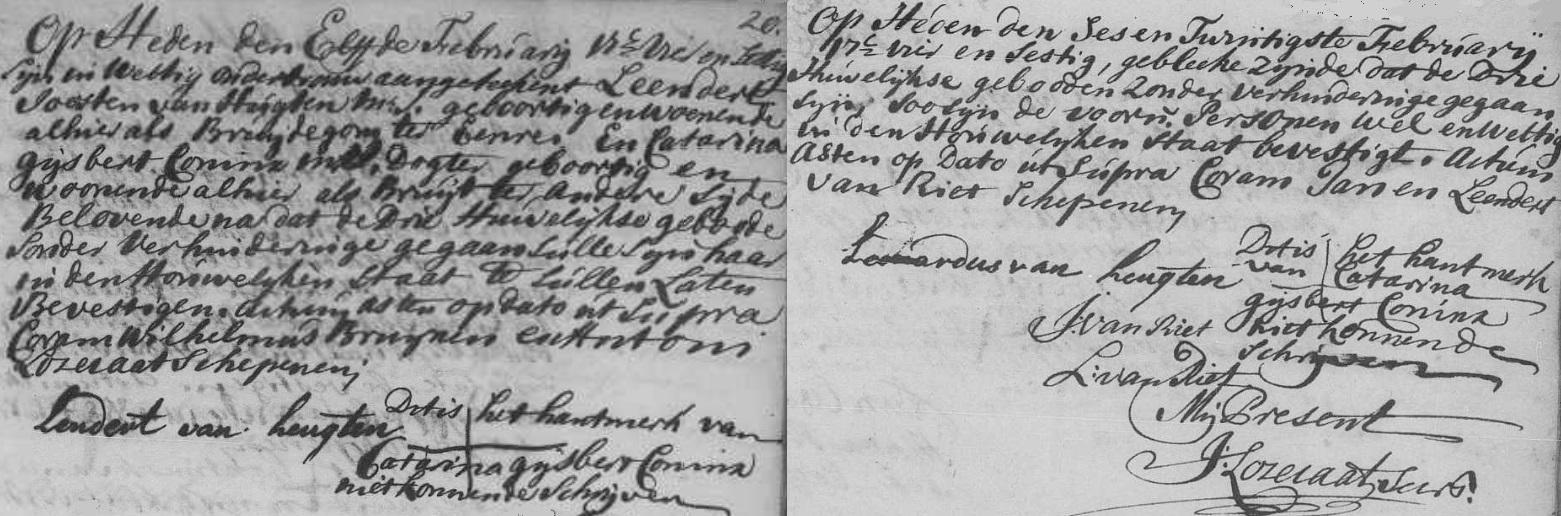 20.
Op Heden den Elffde Februarij 17c vier en Sestig
sijn in Wettig ondertrouw aangeteekent Leendert
Joosten van Huijgten geboortig en woenende
alhier als Bruijdegom ter Eenre. En Catarina
gijsbert Coninx Dogter geboortig en
woonende alhier als Bruijt te Andere Sijde
Belovende na dat de Drie Huwelijkse geboode
Sonder Verhinderinge gegaan Sulle sijn haar
in den Houwelijken Staat te Sullen Laten
Bevestigen. Actum asten op dato ut Supra
Coram Wilhelmus Bruijnen en Antoni
Lozecaat Schepenen,
Lendert van heugten
Ditis het hantmerk van
Catarina gijsbert Coninx
niet konnende Schrijven
Op Héden den Ses en Twintigste Februarij
17c vier en Sestig, gebleeke Zijnde dat de Drie
Huwelijkse gebooden Zonder verhinderinge gegaan
Sijn, Soo Sijn de voorn. Persopen Wel en Wettig
in den Houwelijken Staat bevestigt. Actum
Asten op Dato ut Supra Coram Jan en Leendert
van Riet Schepenen,
Leonardus van heugten
Ditis het hantmerk
van Catarina
gijsbert Coninx
niet konnende
Schrijven
J: van Riet
L: van Riet
Mij Present
J: Lozecaat, Secrs.